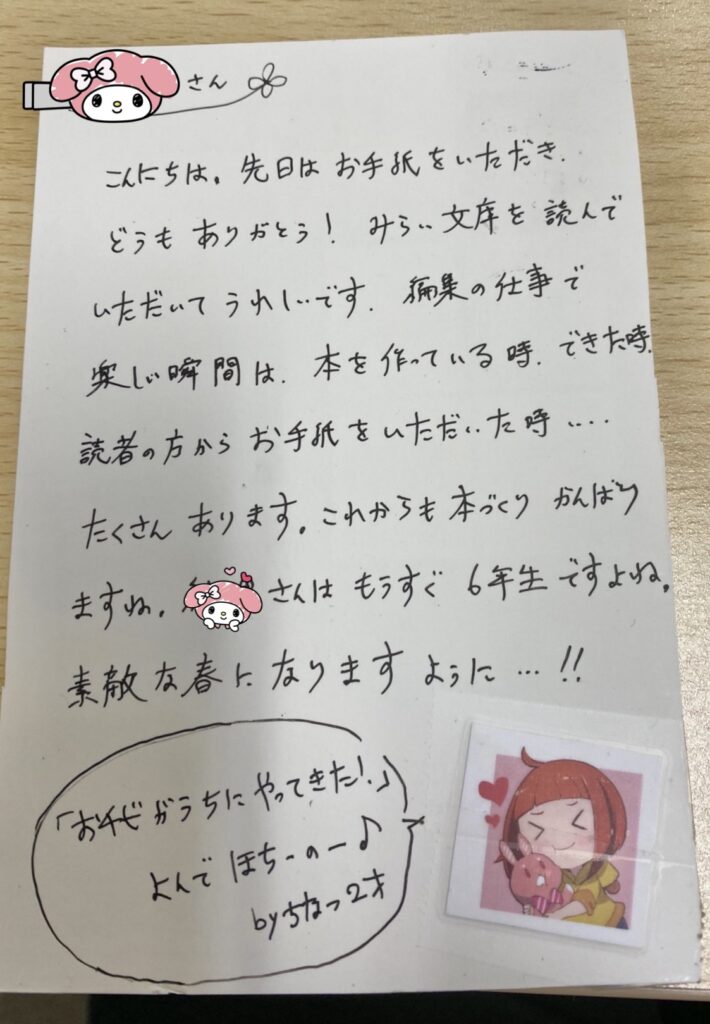 さん
こんにちは。先日はお手紙をいただき、
どうもありがとう！みらい文庫を読んで
いただいてうれしいです。編集の仕事で
楽しい瞬間は、本を作っている時、できた時、
読者の方からお手紙をいただいた時‥‥
たくさんあります。これからも本づくりがんばり
ますね。さんはもうすぐ6年生ですよね。
素敵な春になりますように…!!
「お千ビがうちにやってきた!」
よんでほちーのー♪
byちなつ2才